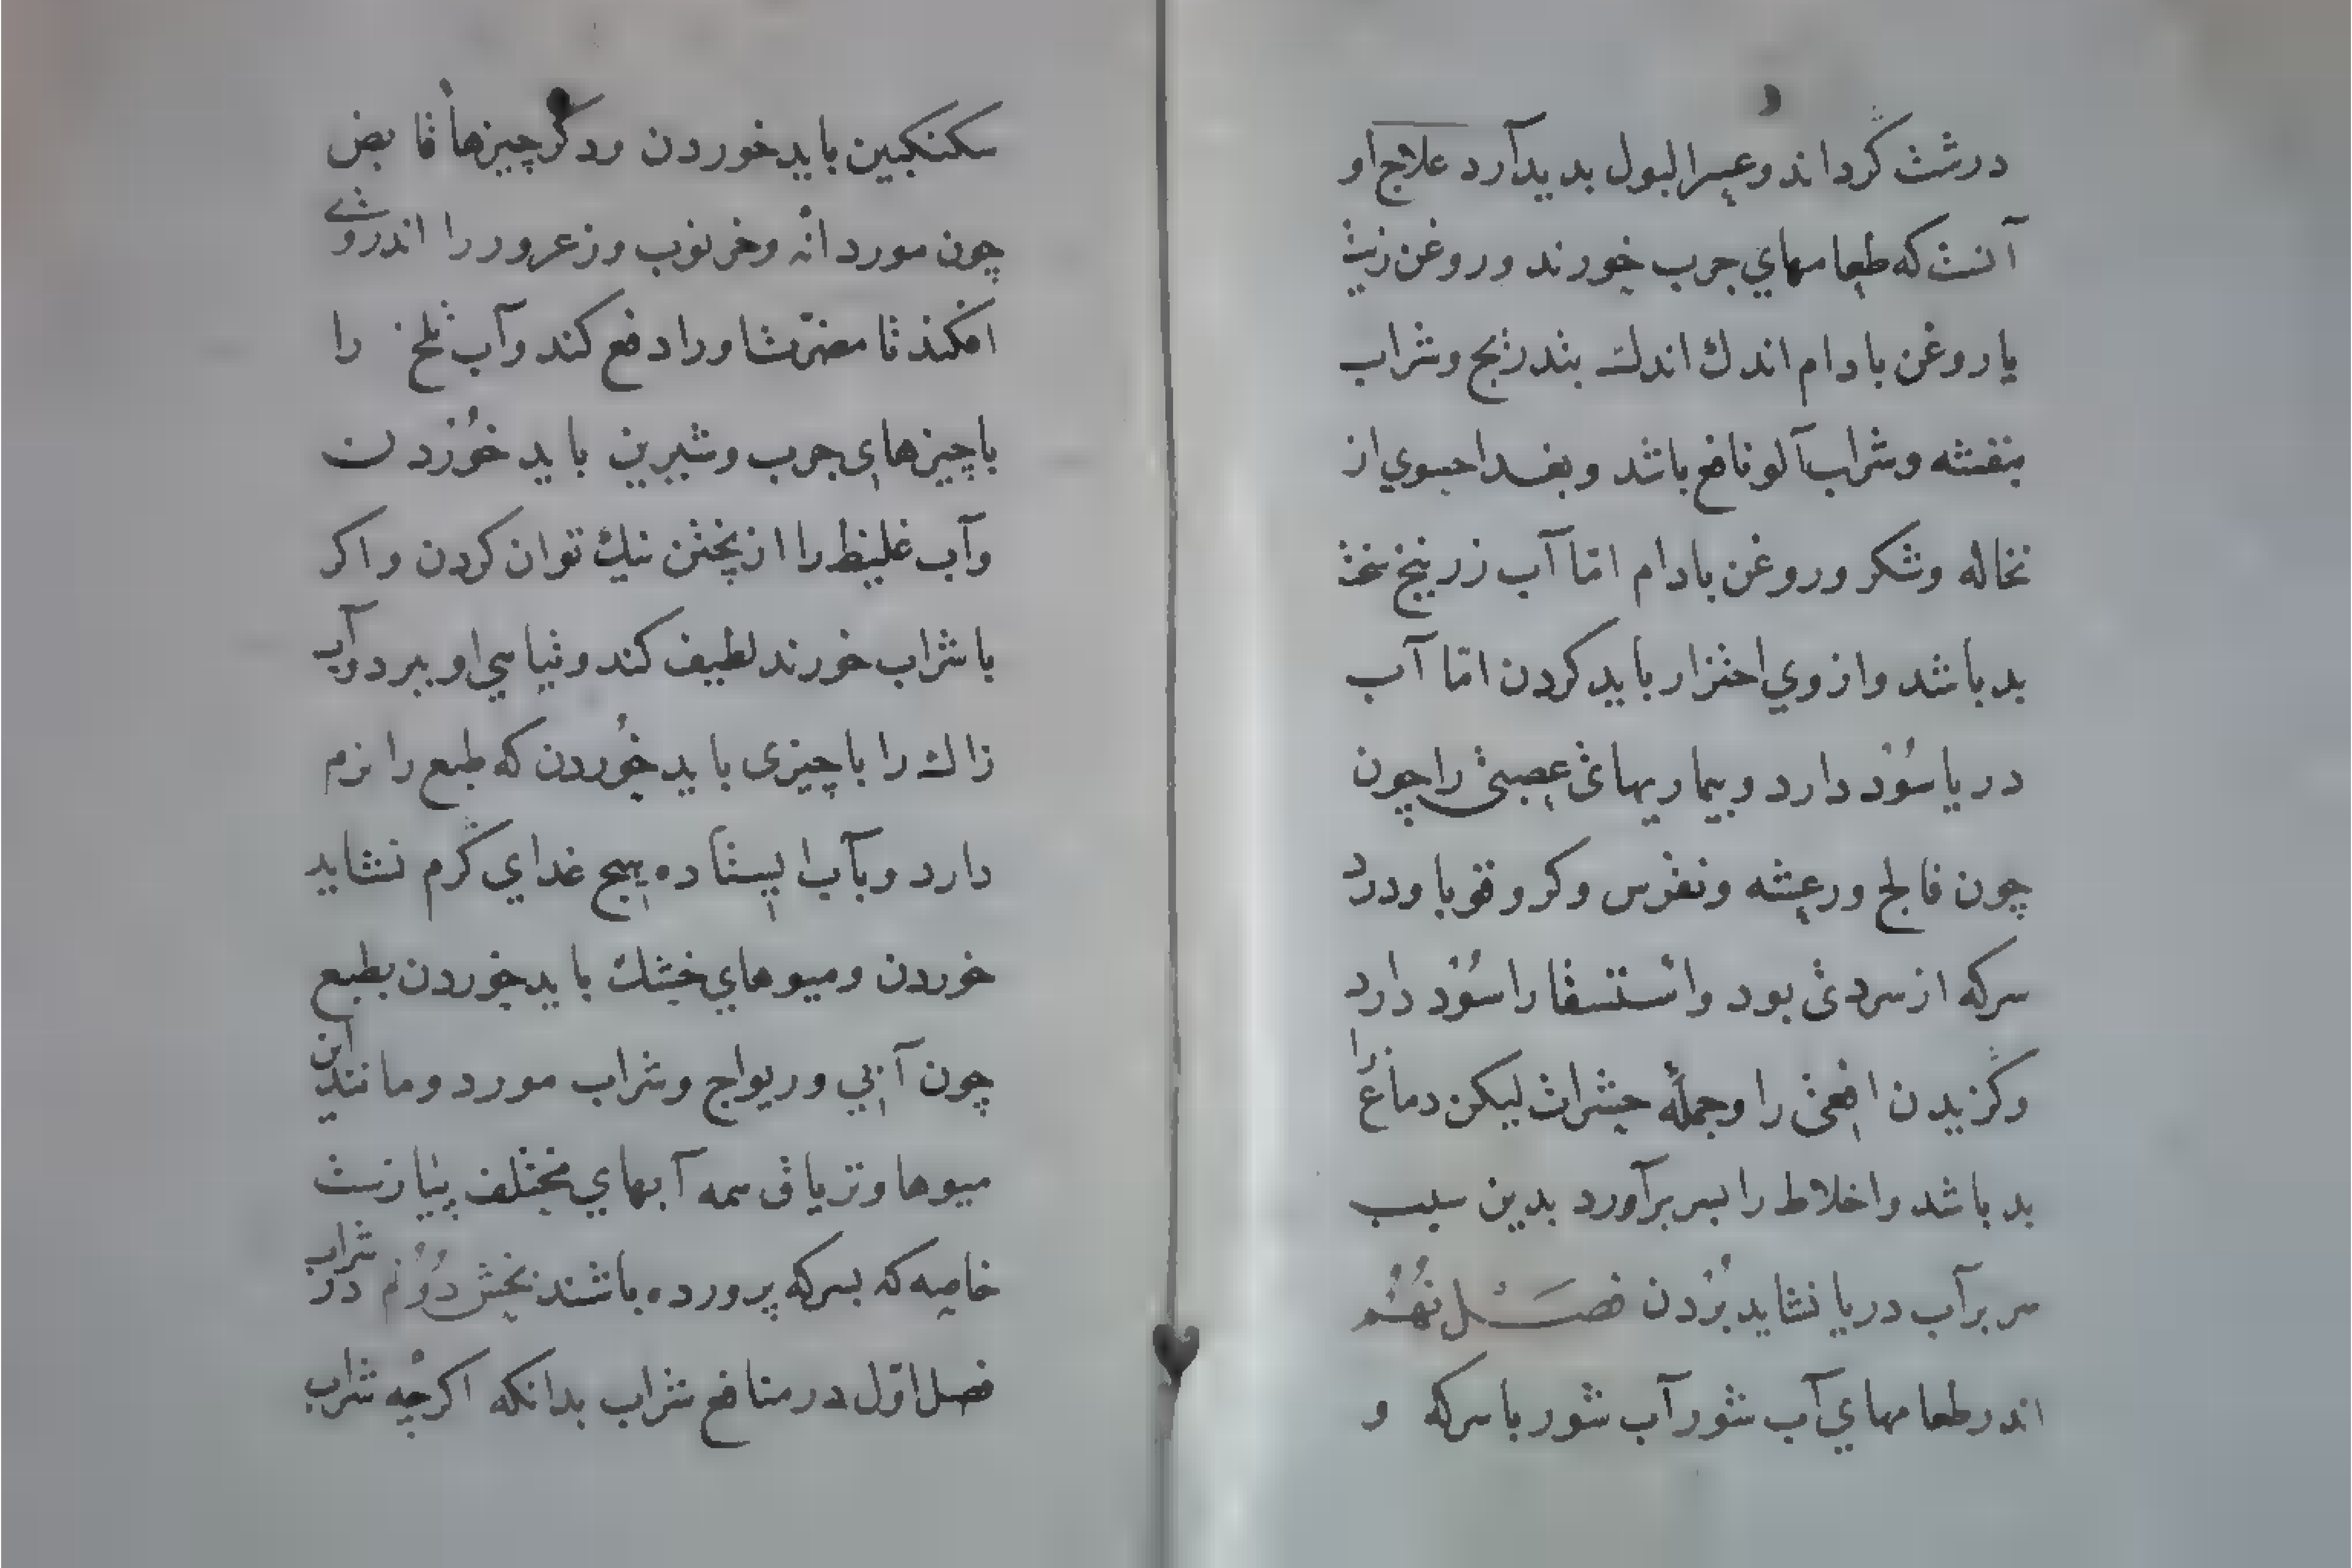 درشت گرداند وعسر البول بدید آرد علاج او
آنست که طعامهاي جرب خورند وروغن زیت
یا روغن بادام اندك اندك بتدریج وشراب
بنفشه وشراب آلو نافع باشد وبغدا حسوي از
نخاله وشکر وروغن بادام امّا آب زرنیخ سخت
بد باشد واز وي احتراز باید کردن امّا آب
دریا سُوْد دارد وبیماریهائ عصبی را چون
چون فالج ورعشه ونقرس وکر وقوبا ودرد
سرکه از سردئ بود واستسقا را سُوْد دارد
وگزیدن افعی را وجمله حشرات لیکن دماغ را
بد باشد واخلاط را بسر برآورد بدین سبب
سر بر آب دریا نشاید بُرْدن فصَـْـل نهُـُم
اندر طعامهاي آب شور آب شور با سرکه و
سکنکبین باید خوردن ودگر چیزهاْ قابض
چون مورد دانه وخرنوب وزعرور را اندر وي
افکند تا مضرّت او را دفع کند وآب تلخ را
با چیزهاي جرب وشیرین باید خُوْردن
وآب غلیظ را از پختن نیك توان کردن واکر
با شراب خورند لطیف کند وتباهي او ببرد وآب
زاك را با چیزی باید خُوردن که طبع را نرم
دارد وبآب ایستاده هیج غداي گرم نشاید
خوردن ومیوهاي خشك باید خوردن بطبع
چون آبي وریواج وشراب مورد ومانند این
میوها وتریاق همه آبهاي مختلف پیازست
خاصه که بسرکه پرورده باشند بخش دُوُم در شراب
فصل اوّل در منافع شراب بدانکه اکرچه شراب